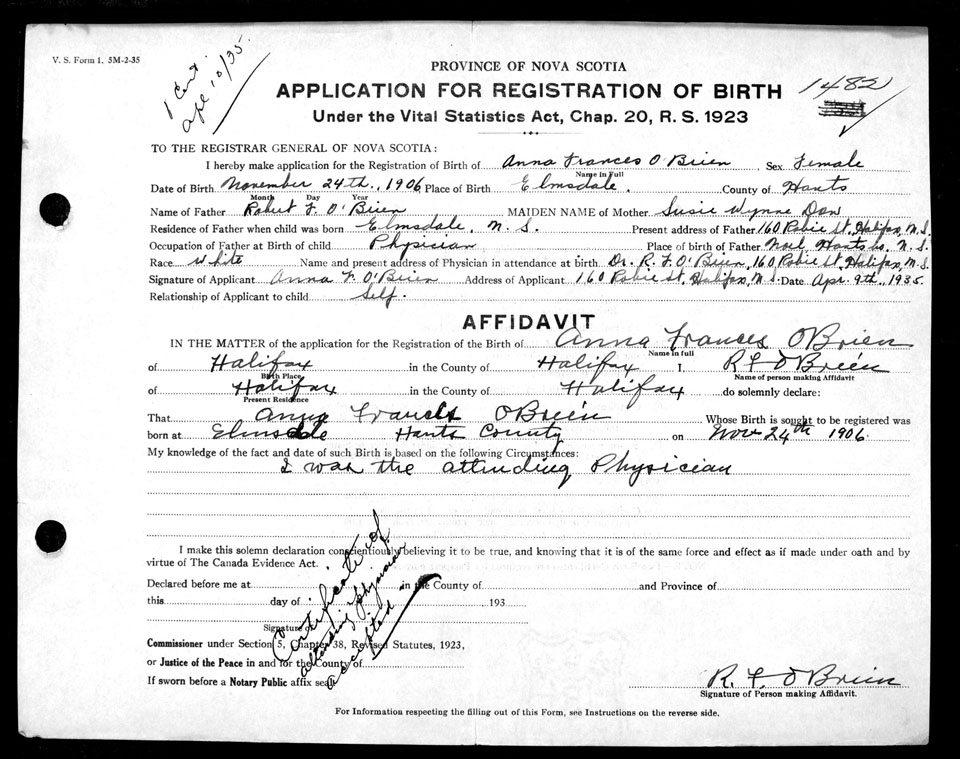 V. S. Form 1. 5M-2-35
1 Cert.
Apl 10/35.
PROVINCE OF NOVA SCOTIA
APPLICATION FOR REGISTRATION OF BIRTH
1482
Under the Vital Statistics Act, Chap. 20, R. S. 1923
TO THE REGISTRAR GENERAL OF NOVA SCOTIA:
I hereby make application for the Registration of Birth of Anna Frances O'Brien Sex Female
Name in Full
Date of Birth November 24th., 1906 Place of Birth Elmsdale. County of Hants
Month Day Year
Name of Father Robert F. O'Brien MAIDEN NAME of Mother Susie Wynne Dow
Residence of Father when child was born Elmsdale, N. S. Present address of Father 160 Robie St. Halifax, N.S.
Occupation of Father at Birth of child Physician Place of birth of Father Noel Hants Co. N. S.
Race White Name and present address of Physician in attendance at birth Dr. R. F. O'Brien, 160 Robie St, Halifax, N.S.
Signature of Applicant Anna F. O'Brien Address of Applicant 160 Robie St, Halifax, N.S. Date Apr. 9th., 1935.
Relationship of Applicant to child Self.
AFFIDAVIT
IN THE MATTER of the application for the Registration of the Birth of Anna Frances OBrien
Name in full
of Halifax in the County of Halifax I. R F O'Brien
Birth Place Name of person making Affidavit
of Halifax in the County of Halifax do solemnly declare:
Present Residence
That Anna Francis OBrien Whose Birth is sought to be registered was
born at Elmsdale Hants County on Nov 24th 1906.
My knowledge of the fact and date of such Birth is based on the following Circumstances:
I was the attending Physician
I make this solemn declaration conscientiously believing it to be true, and knowing that it is of the same force and effect as if made under oath and by
virtue of The Canada Evidence Act.
Declared before me at in the County of and Province of
this day of 193
Signature of
Certificate of
attending physician
accepted
Commissioner under Section 5, Chapter 38, Revised Statutes, 1923,
or Justice of the Peace in and for the County of
If sworn before a Notary Public affix seal
R. F. O'Brien
Signature of Person making Affidavit.
For Information respecting the filling out of this Form, see Instructions on the reverse side.